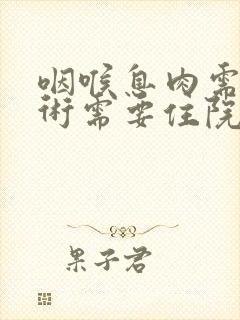 咽喉息肉需
术需要住院
果子君